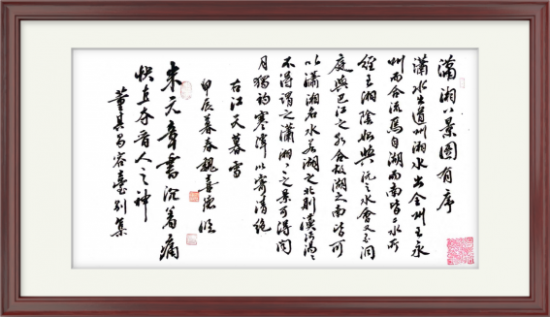 瀟湘八景圖有序
瀟水出道州湘水出全州至永
州而合流焉自湖而南皆二水所
經至湘陰始與沅之水會又至洞
庭與巴江之水合故湖之南皆可
以瀟湘名水若湖之北則漢沔湯〻
不得謂之瀟湘〻〻之景可得聞
月獨釣寒潭以寄清絕
右江天暮雪
甲辰暮春魏喜臨
米元章書沉着痛
快直奪晉人之神
董其昌容臺別集